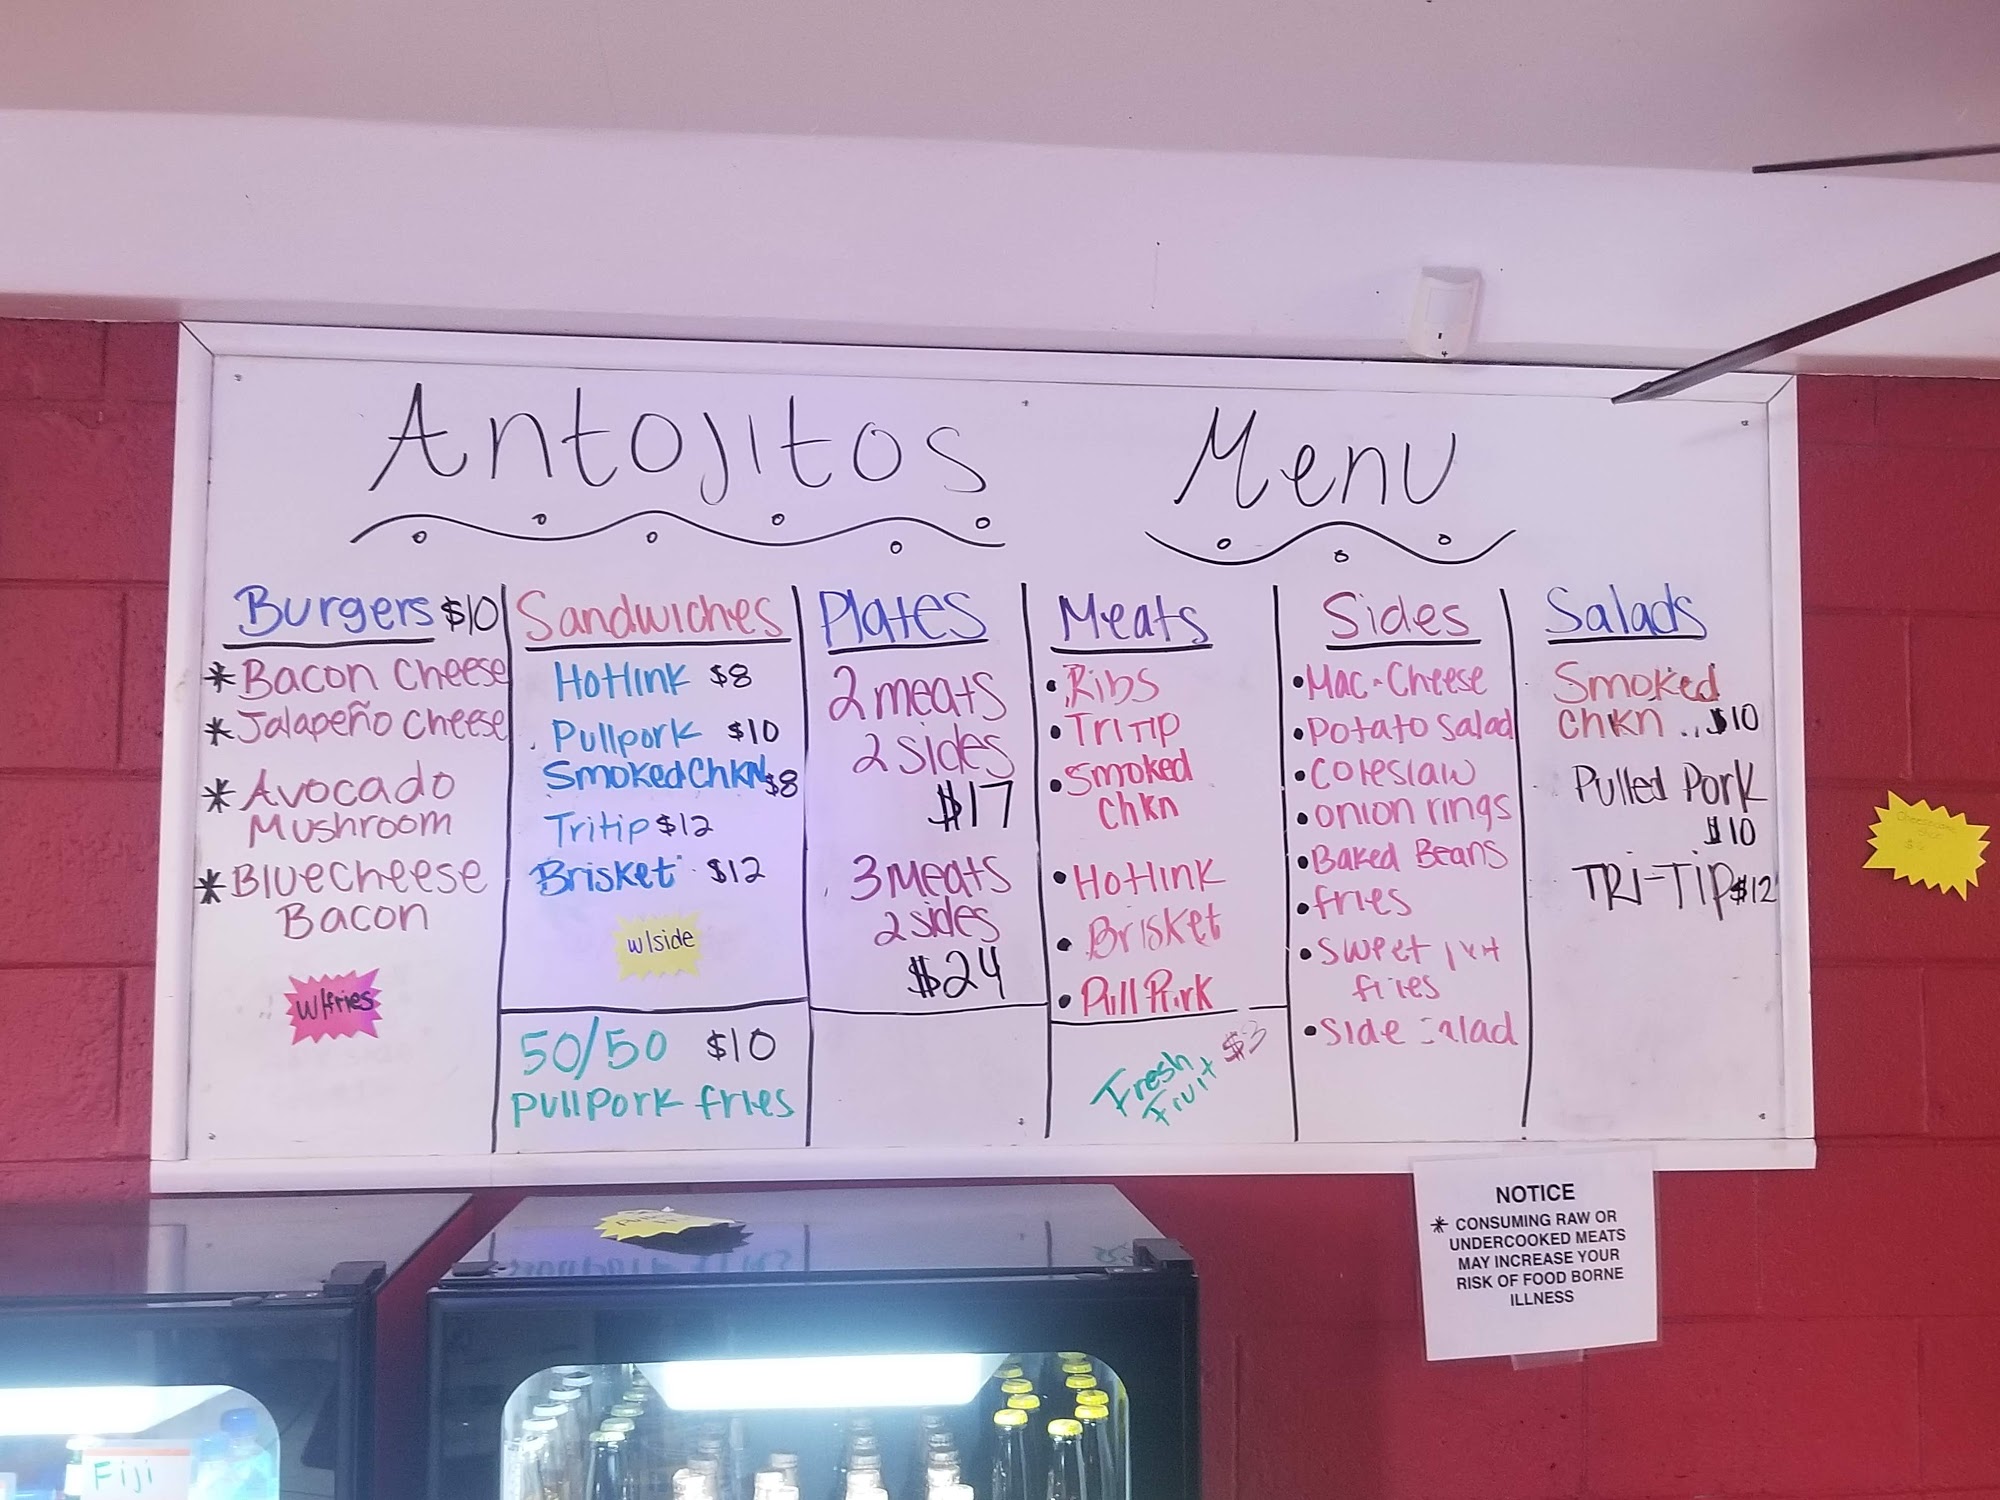 Antojitos Menu
Burgers $10
* Bacon Cheese
* Jalapeño Cheese
* Avocado
Mushroom
* Bluecheese
Bacon
w/fries
Sandwiches
Hotlink $8
Pullpork $10
Smoked Chkn $8
Tritip $12
Brisket $12
w/side
50/50 $10
Pullpork fries
Plates
2 meats
2 sides
$17
3 Meats
2 sides
$24
Meats
• Ribs
• Tritip
• Smoked
Chkn
• Hotlink
• Brisket
• Pull Pork
Fresh
Fruit $3
Sides
• Mac-Cheese
• Potato Salad
• Coleslaw
• onion rings
• Baked Beans
• fries
• Sweet
fries
• Side Salad
Salads
Smoked
Chkn .. $10
Pulled Pork
$10
TRi-Tip $12
NOTICE
* CONSUMING RAW OR
UNDERCOOKED MEATS
MAY INCREASE YOUR
RISK OF FOOD BORNE
ILLNESS
Fiji